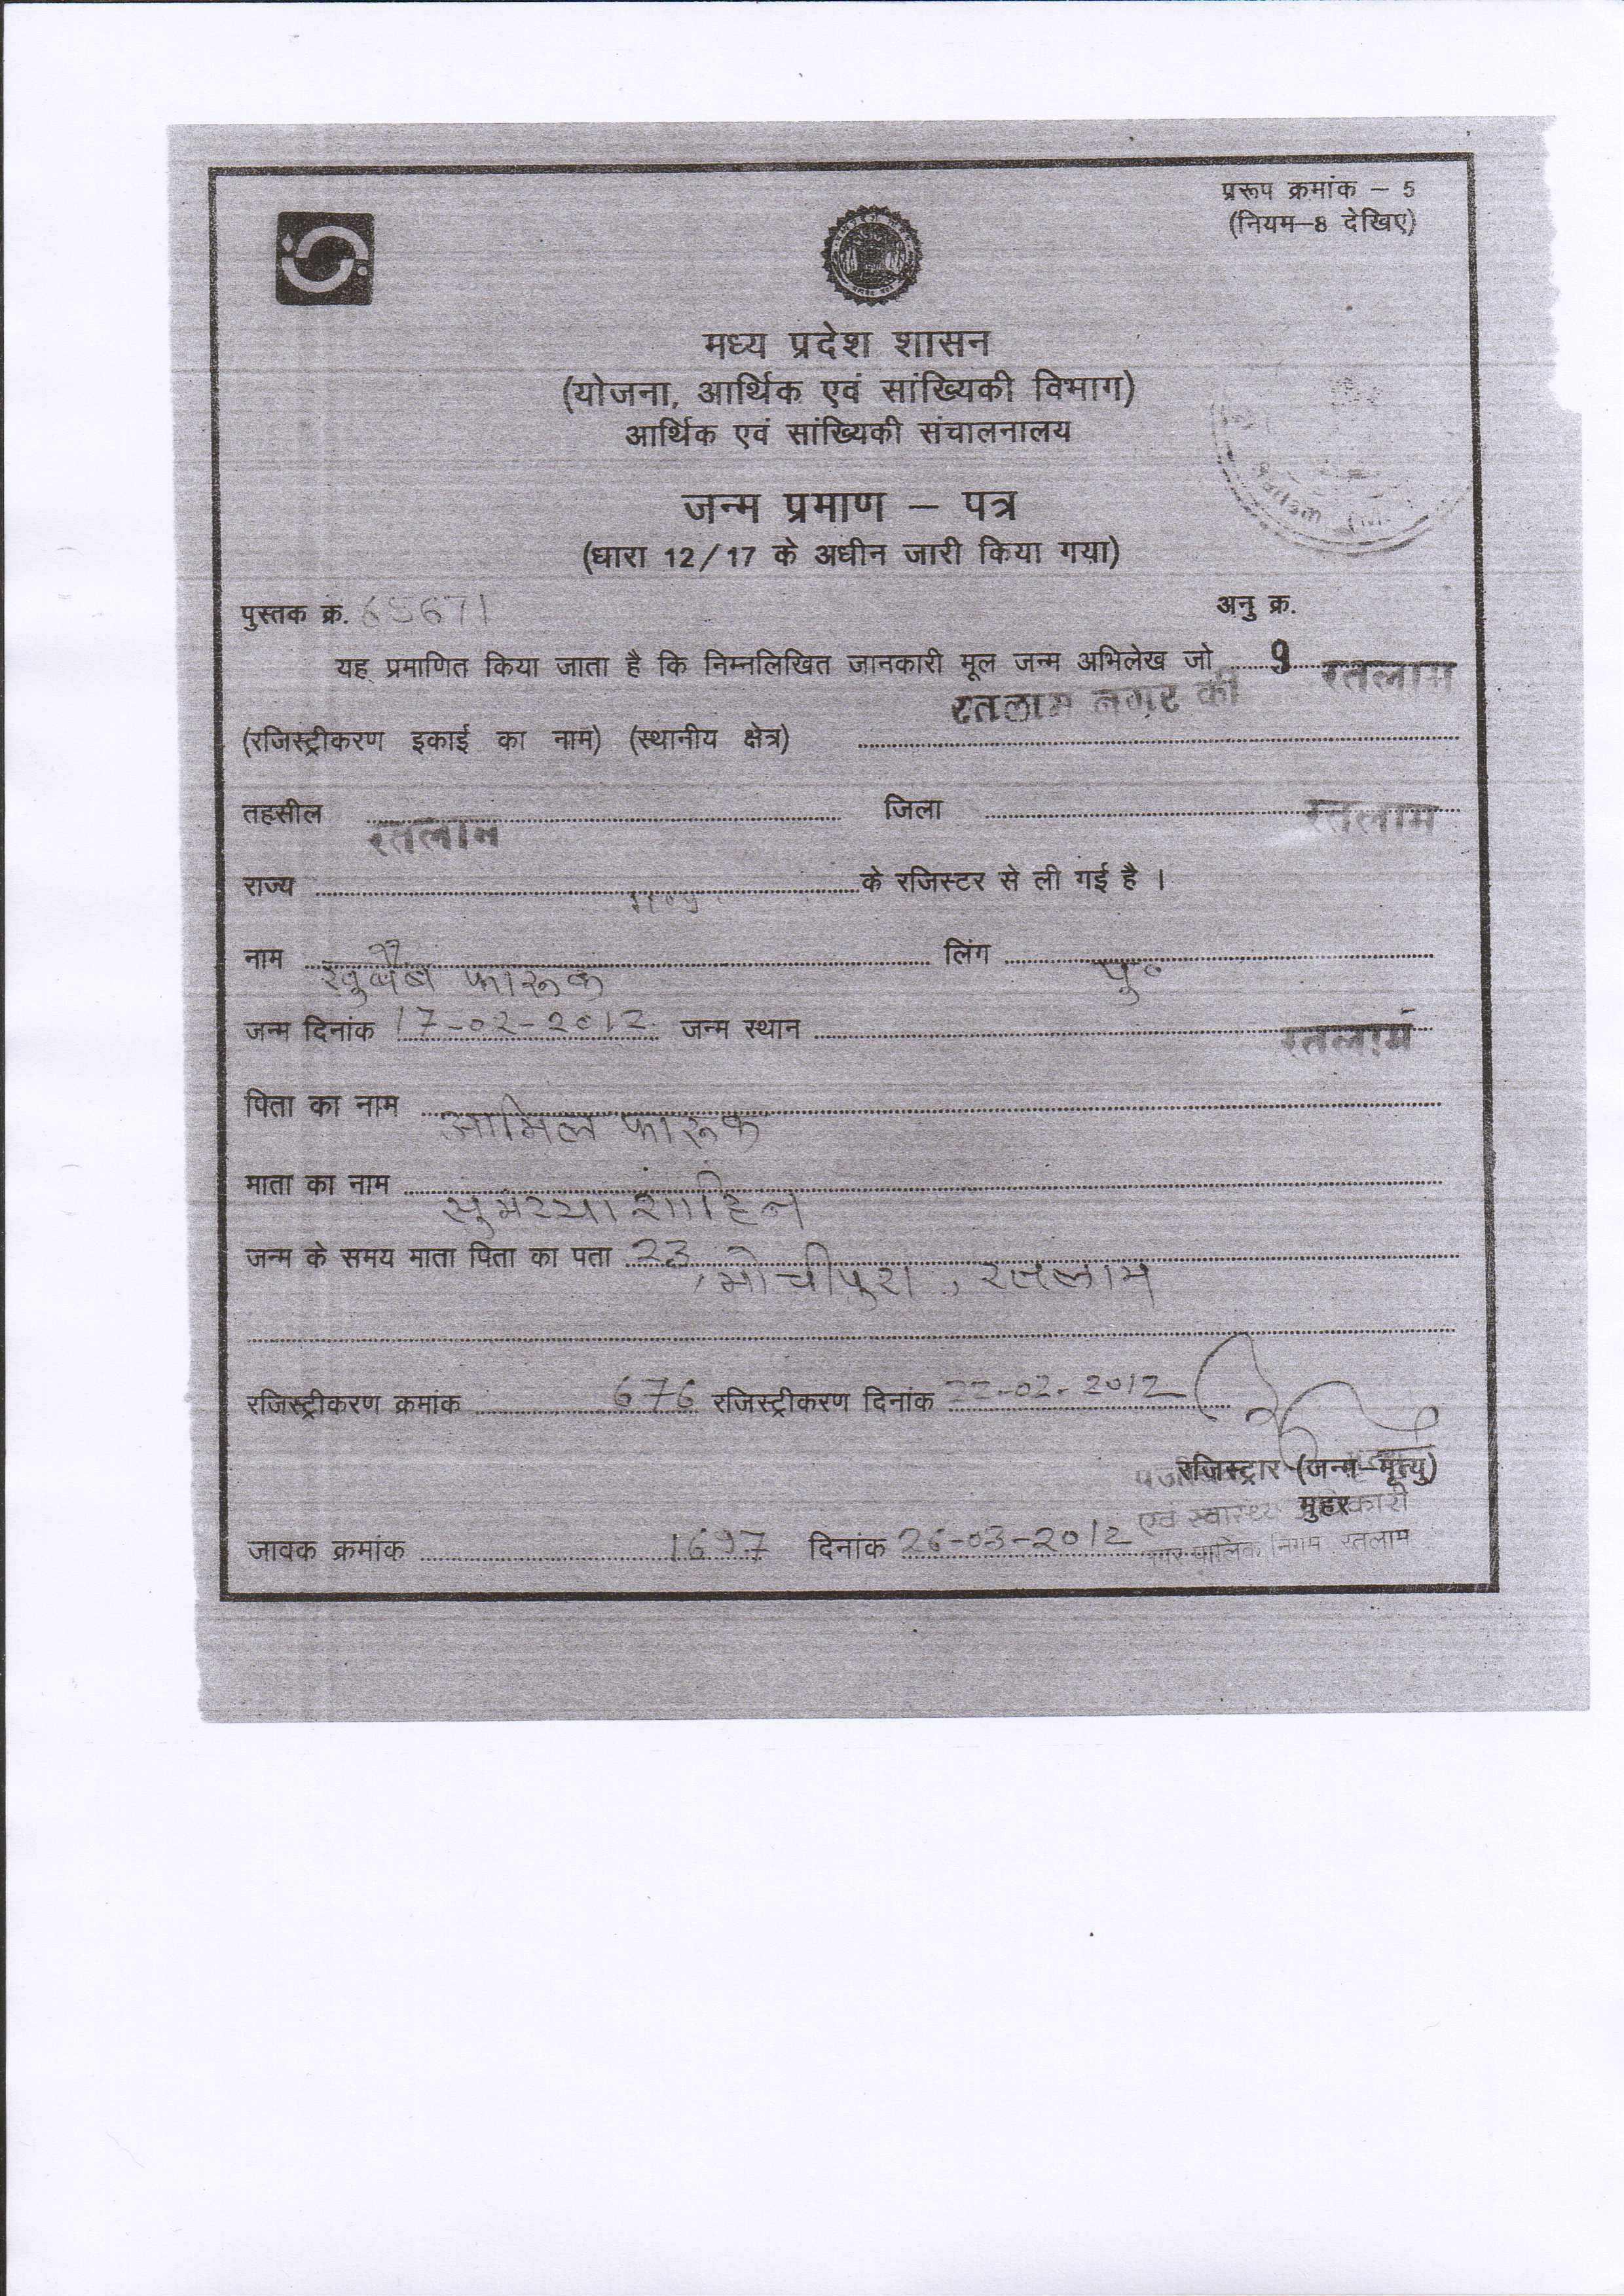 प्ररूप क्रमांक – 5
(नियम–8 देखिए)
मध्य प्रदेश शासन
(योजना, आर्थिक एवं सांख्यिकी विभाग)
आर्थिक एवं सांख्यिकी संचालनालय
जन्म प्रमाण – पत्र
(धारा 12/17 के अधीन जारी किया गया)
Ratlam
पुस्तक क्र. 65671 अनु क्र.
यह प्रमाणित किया जाता है कि निम्नलिखित जानकारी मूल जन्म अभिलेख जो 9 रतलाम
रतलाम नगर की
(रजिस्ट्रीकरण इकाई का नाम) (स्थानीय क्षेत्र)
तहसील रतलाम जिला रतलाम
राज्य के रजिस्टर से ली गई है ।
नाम फारूक लिंग पु०
जन्म दिनांक 17-02-2012 जन्म स्थान रतलाम
पिता का नाम आमिल फारूक
माता का नाम सुमय्या शाहिन
जन्म के समय माता पिता का पता 23, मोचीपुरा, रतलाम
रजिस्ट्रीकरण क्रमांक 676 रजिस्ट्रीकरण दिनांक 22-02-2012
रजिस्ट्रार (जन्म–मृत्यु)
एवं स्वास्थ्य मुहर
जावक क्रमांक 1697 दिनांक 26-03-2012 पालिक निगम रतलाम